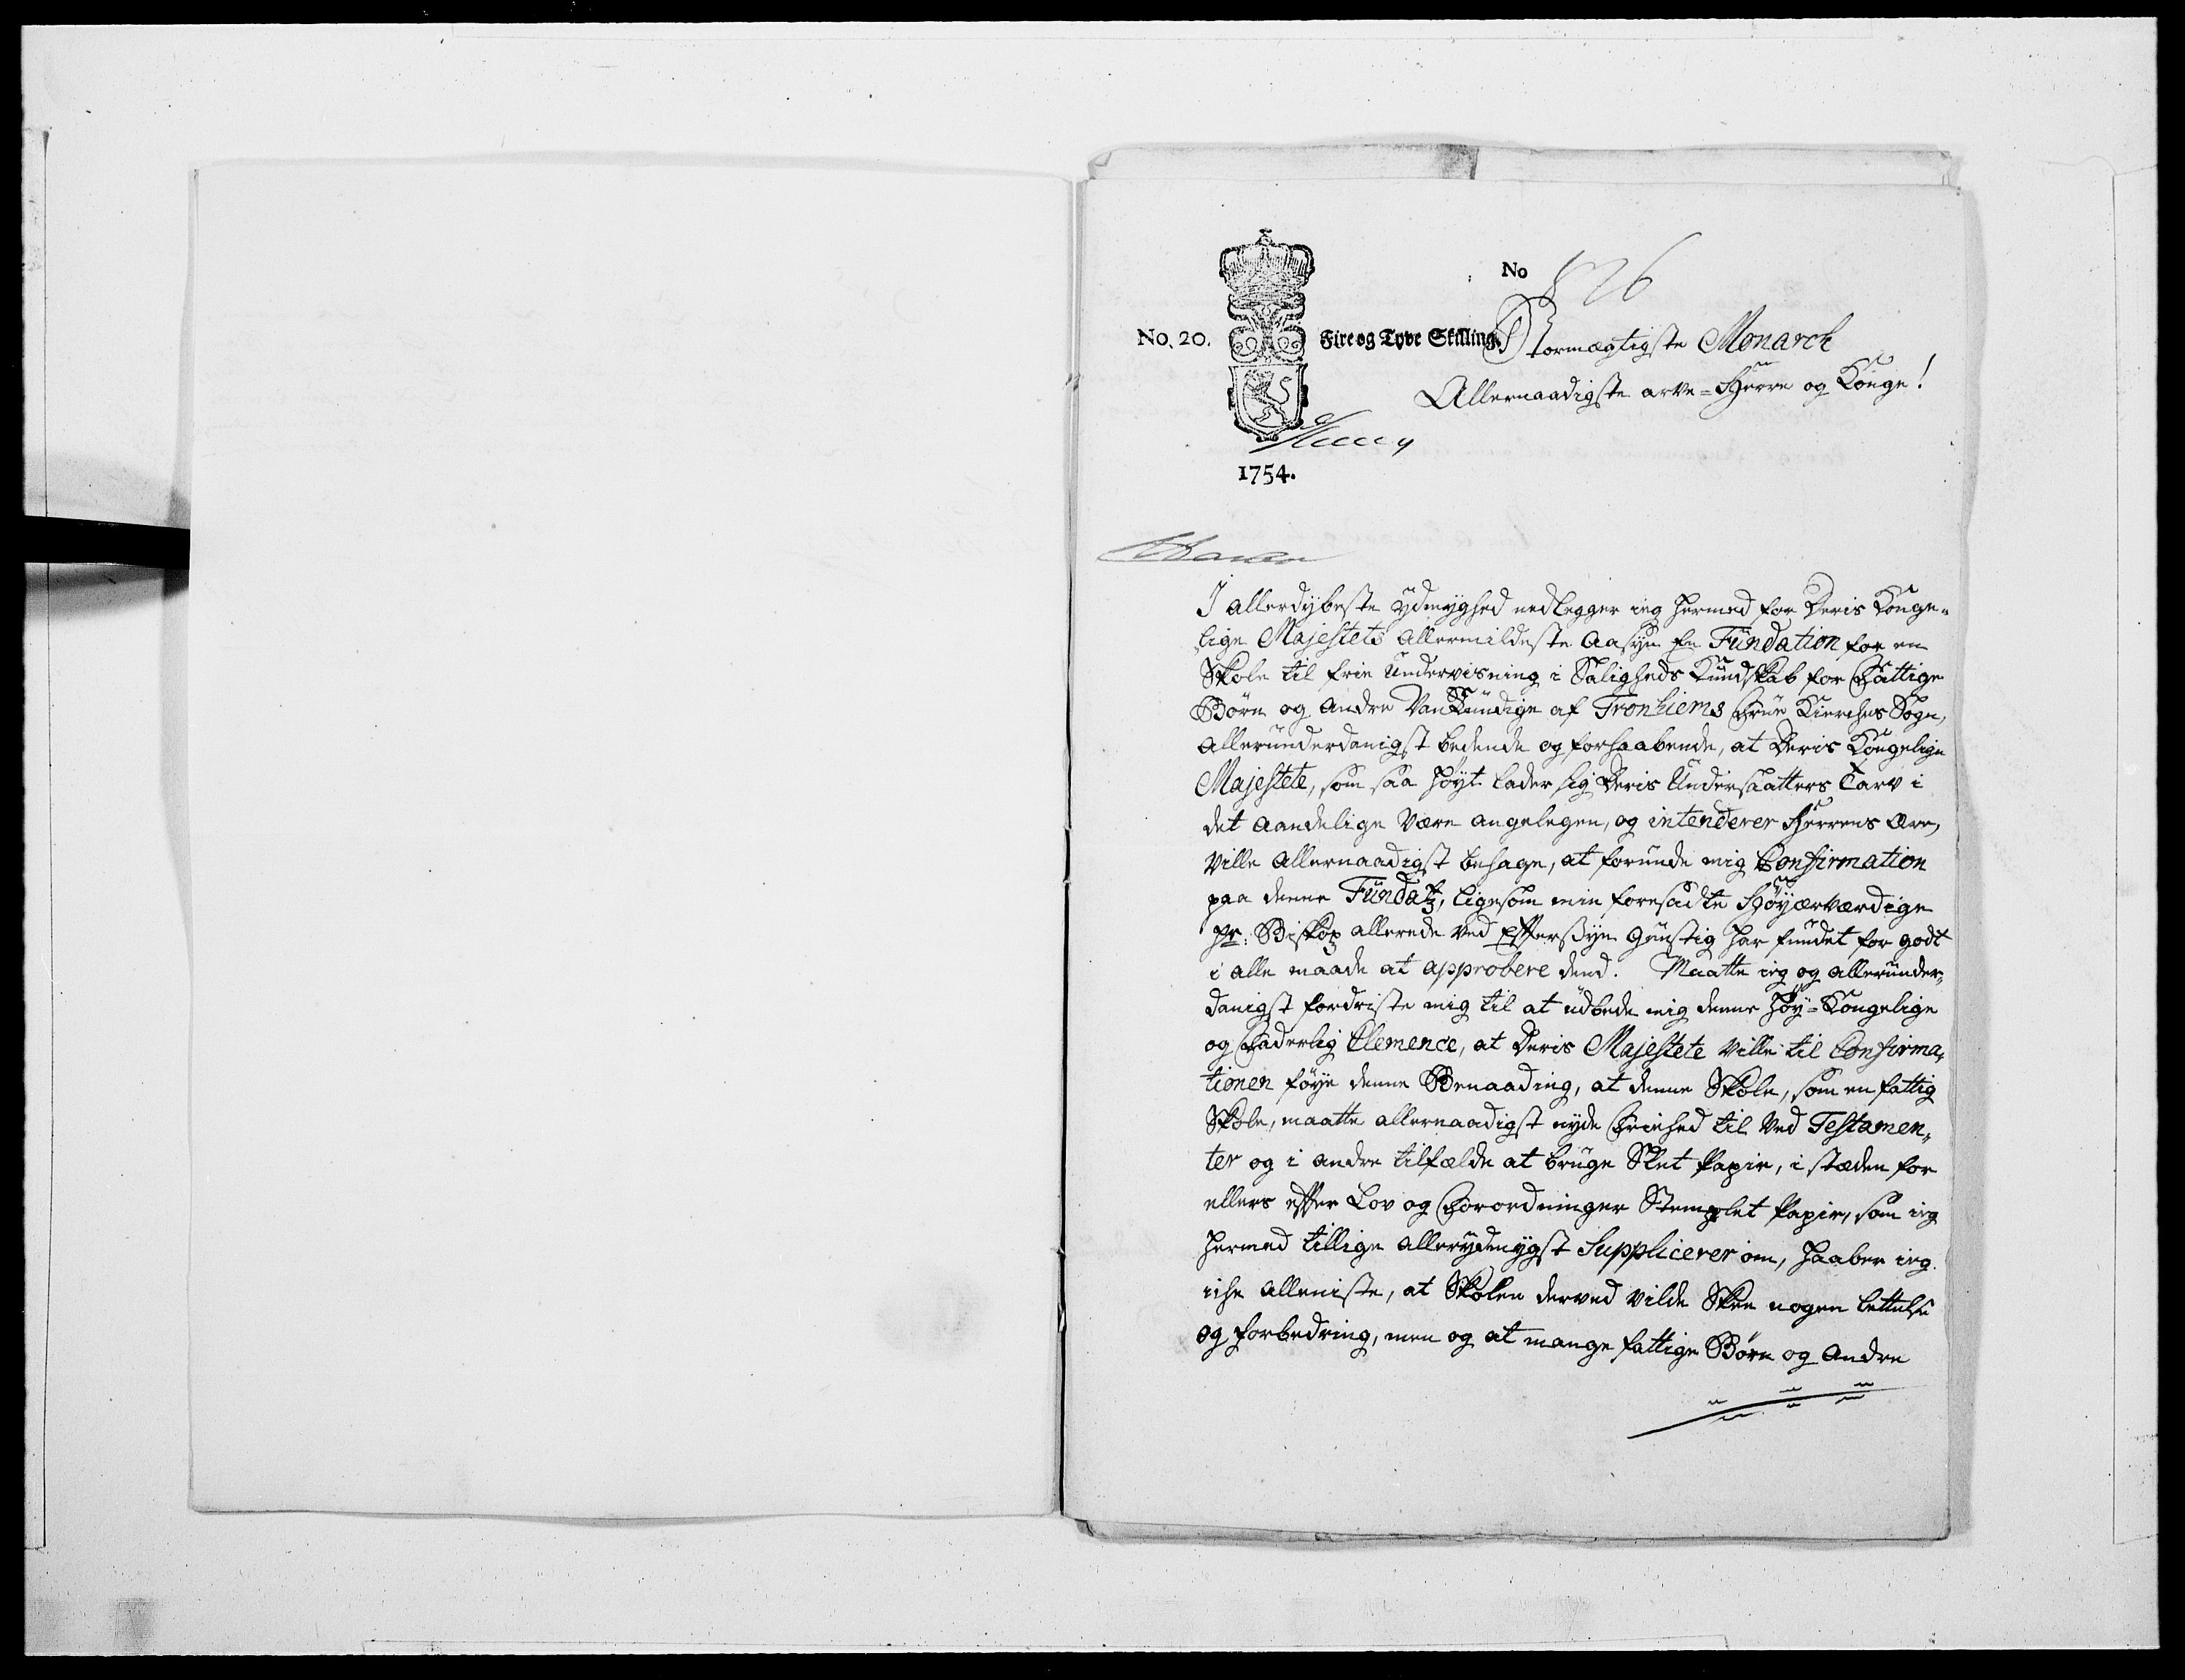 No 826
No. 20. Fire og Tyve Skilling.
Stormægtigste Monarch
Allernaadigste arve-Herre og Konge!
1754.
I allerdybeste ÿdmyghed nedlegger ieg hermed for Deris Konge-
lige Majestets allermildeste Aasyn En Fundation for en
Skole til frie Underviisning i Saligheds Kundskab for Fattige
Børn og Andre VanKundige af Tronhiems Frue Kirches Sogn,
allerunderdanigst bedende og forhaabende, at Deris Kongelige
Majestete, som saa høyt lader sig Deris Undersaatters Tarv i
det aandelige Være angelegen, og intenderer Herrens Ære,
Ville allernaadigst behage, at forunde mig Confirmation
paa denne Fundatz, ligesom min foresadte Høyærværdige
Hr: Biskop allerede ved Effersyn Gunstig har fundet for godt
i alle maade at approbere dend. Maatte ieg og allerunder-
danigst fordriste mig til at udbede mig denne høy-Kongelige
og Faderlig Clemence, at Deris Majestete Ville til Confirma-
tionen føye denne Benaading, at denne Skole, som en fattig
Skole, maatte allernaadigst nyde Friehed til Ved Testamen-
ter og i andre tilfælde at bruge Slet Papir, i stæden for
ellers effter Lov og Forordninger Stemplet Papir, som ieg
hermed tillige allerydmygst Supplicerer om, haaber ieg
iche alleniste, at Skolen derved vilde Skee nogen lettelse
og forbedring, men og at mange fattige Børn og Andre